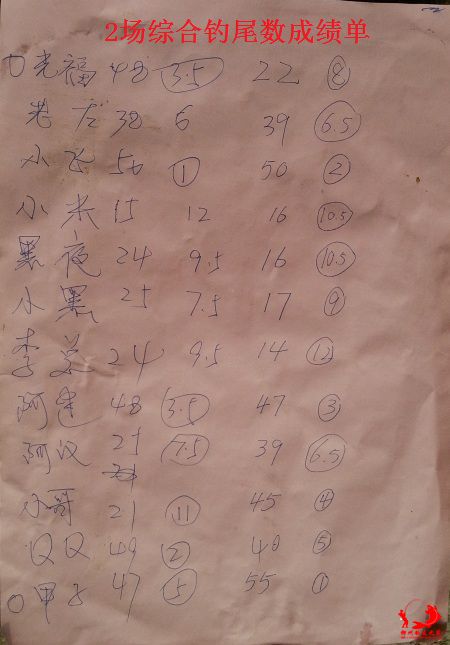 2场综合钓尾数成绩单
光福 48 3.5 22 8
老虎 38 6 39 6.5
小飞 50 1 50 2
小米 15 12 16 10.5
黑夜 24 9.5 16 10.5
小黑 25 7.5 17 9
李总 24 9.5 14 12
阿建 48 3.5 47 3
阿汉 25 7.5 39 6.5
小哥 21 11 45 4
49 2 40 5
甲子 47 5 55 1